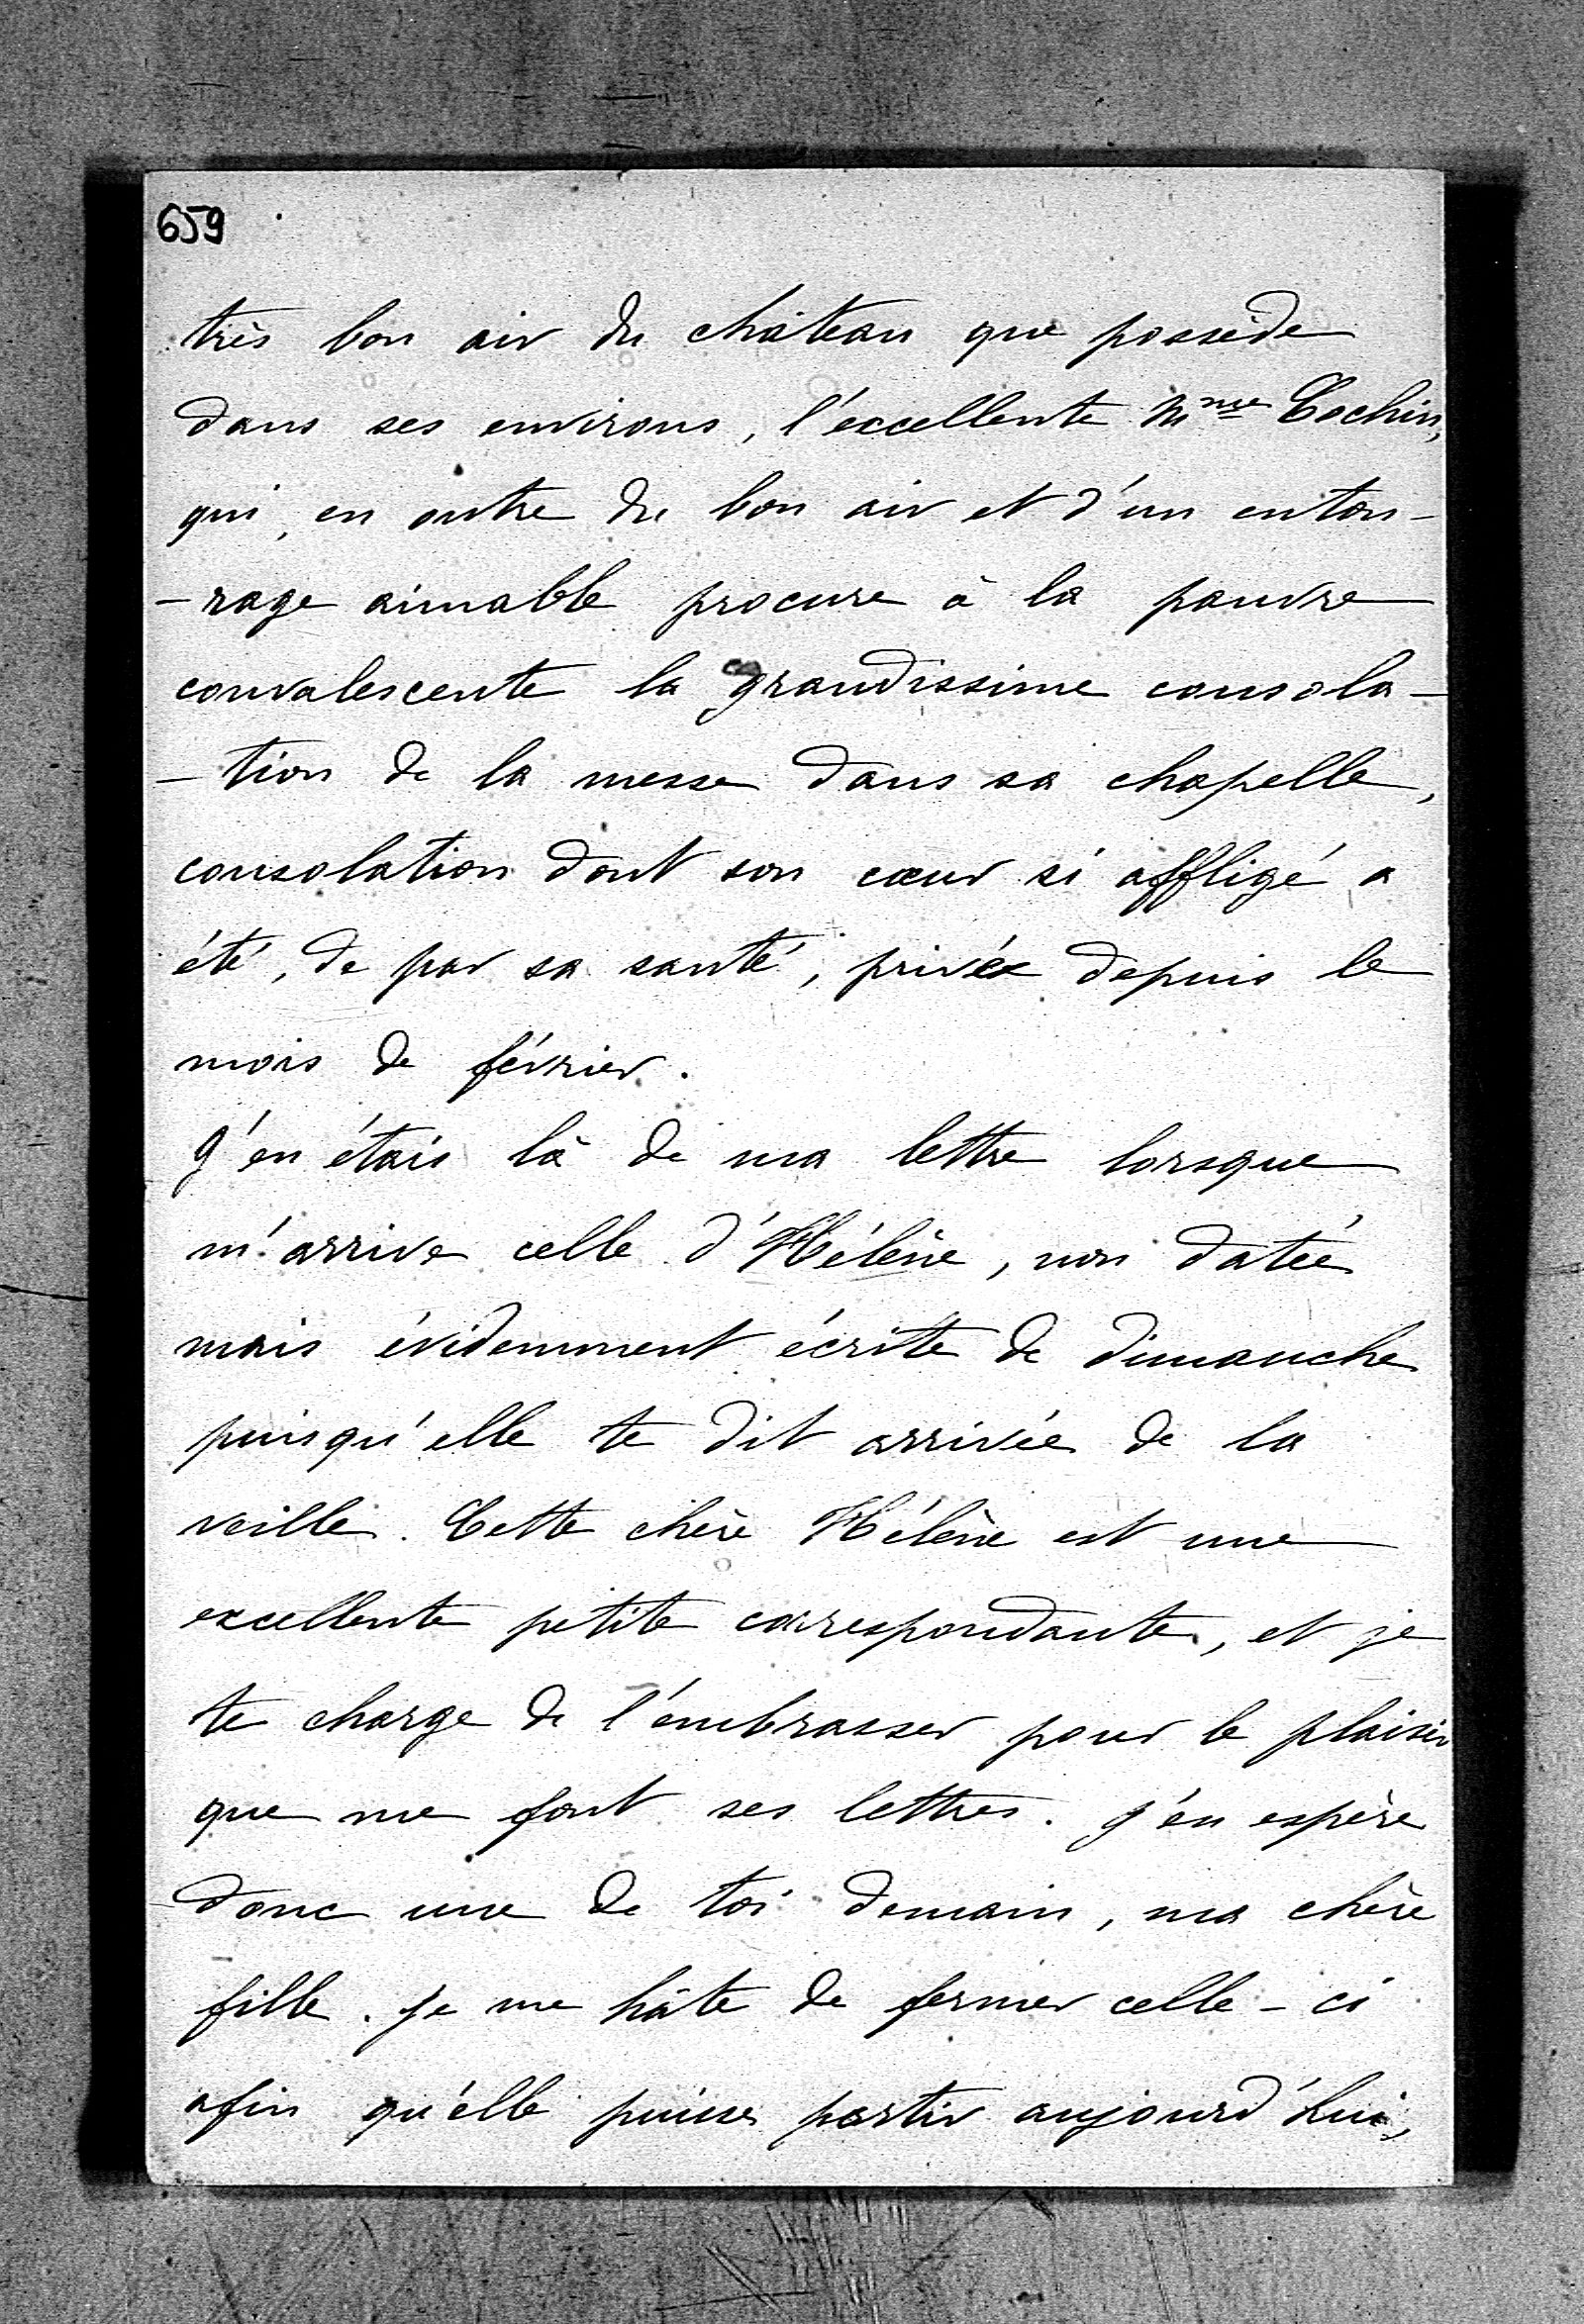 659
très bon air du château que possède
dans ses environs, l'excellente Mme Cochin,
qui, en outre du bon air et d'un entou-
-rage aimable procure à la pauvre
convalescente la grandissime consola-
-tion de la messe dans sa chapelle,
consolation dont son cœur si affligé a
été, de par sa santé, privée depuis le
mois de février.
J'en étais là de ma lettre lorsque
m'arrive celle d'Hélène, non datée
mais évidemment écrite de dimanche
puisqu'elle te dit arrivée de la
veille. Cette chère Hélène est une
excellente petite correspondante, et je
te charge de l'embrasser pour le plaisir
que me font ses lettres. J'en espère
donc une de toi demain, ma chère
fille. Je me hâte de fermer celle-ci
afin qu'elle puisse partir aujourd'hui,